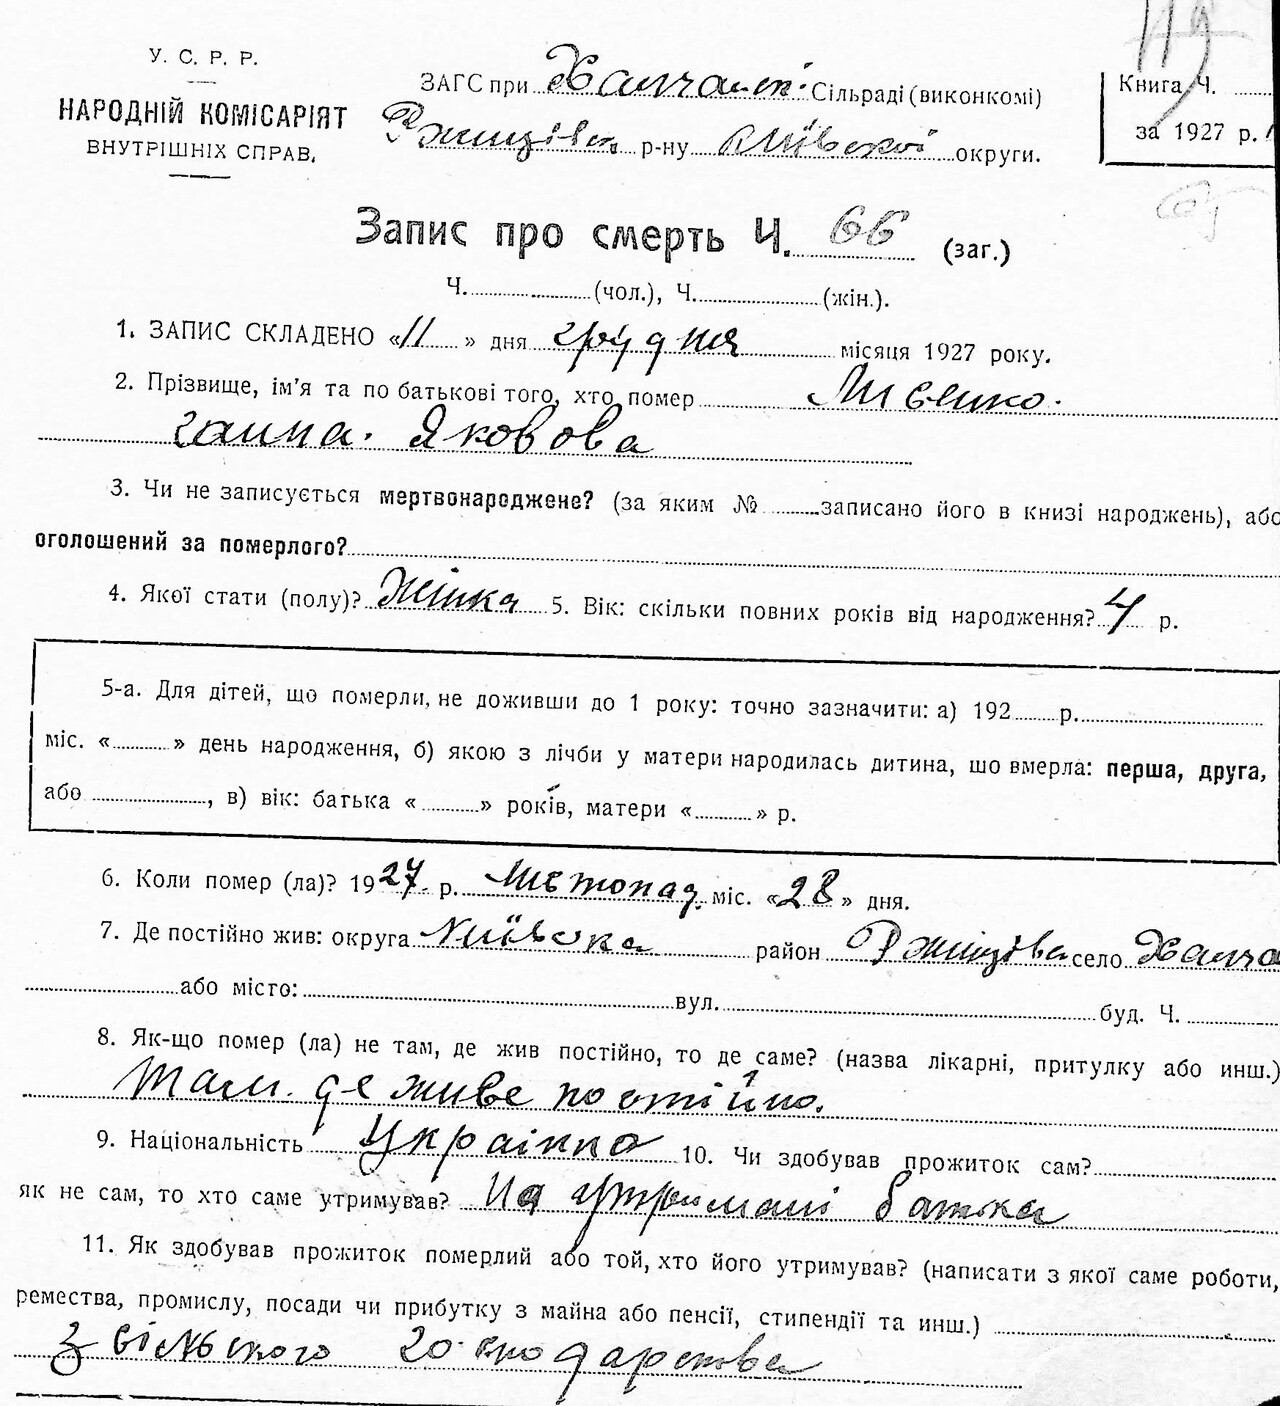 119
У. С. Р. Р.
НАРОДНІЙ КОМІСАРІЯТ
ВНУТРІШНІХ СПРАВ.
ЗАГС при Халчанскі Сільраді (виконкомі)
Ржищівськ р-ну Київської округи.
Книга Ч.
за 1927 р.
Запис про смерть Ч. 66 (заг.)
Ч. (чол.), Ч. (жін.).
1. ЗАПИС СКЛАДЕНО «11» дня грудня місяця 1927 року.
2. Прізвище, ім'я та по батькові того, хто помер Лисенко.
ганна. Яковова
3. Чи не записується мертвонароджене? (за яким № записано його в книзі народжень), або
оголошений за померлого?
4. Якої стати (полу)? Жінка 5. Вік: скільки повних років від народження? 4 р.
5-а. Для дітей, що померли, не доживши до 1 року: точно зазначити: а) 192 р.
міс. « » день народження, б) якою з лічби у матери народилась дитина, що вмерла: перша, друга,
або , в) вік: батька « » років, матери « » р.
6. Коли помер (ла)? 1927 р. Листопад. міс. «28» дня.
7. Де постійно жив: округа Київська район Ржищівськ село Халча
або місто: вул. буд. Ч.
8. Як-що помер (ла) не там, де жив постійно, то де саме? (назва лікарні, притулку або инш.)
Там. де живе постійно.
9. Національність Украінка 10. Чи здобував прожиток сам?
як не сам, то хто саме утримував? На утримані батька
11. Як здобував прожиток померлий або той, хто його утримував? (написати з якої саме роботи,
ремества, промислу, посади чи прибутку з майна або пенсії, стипендії та инш.)
З сільського господарства